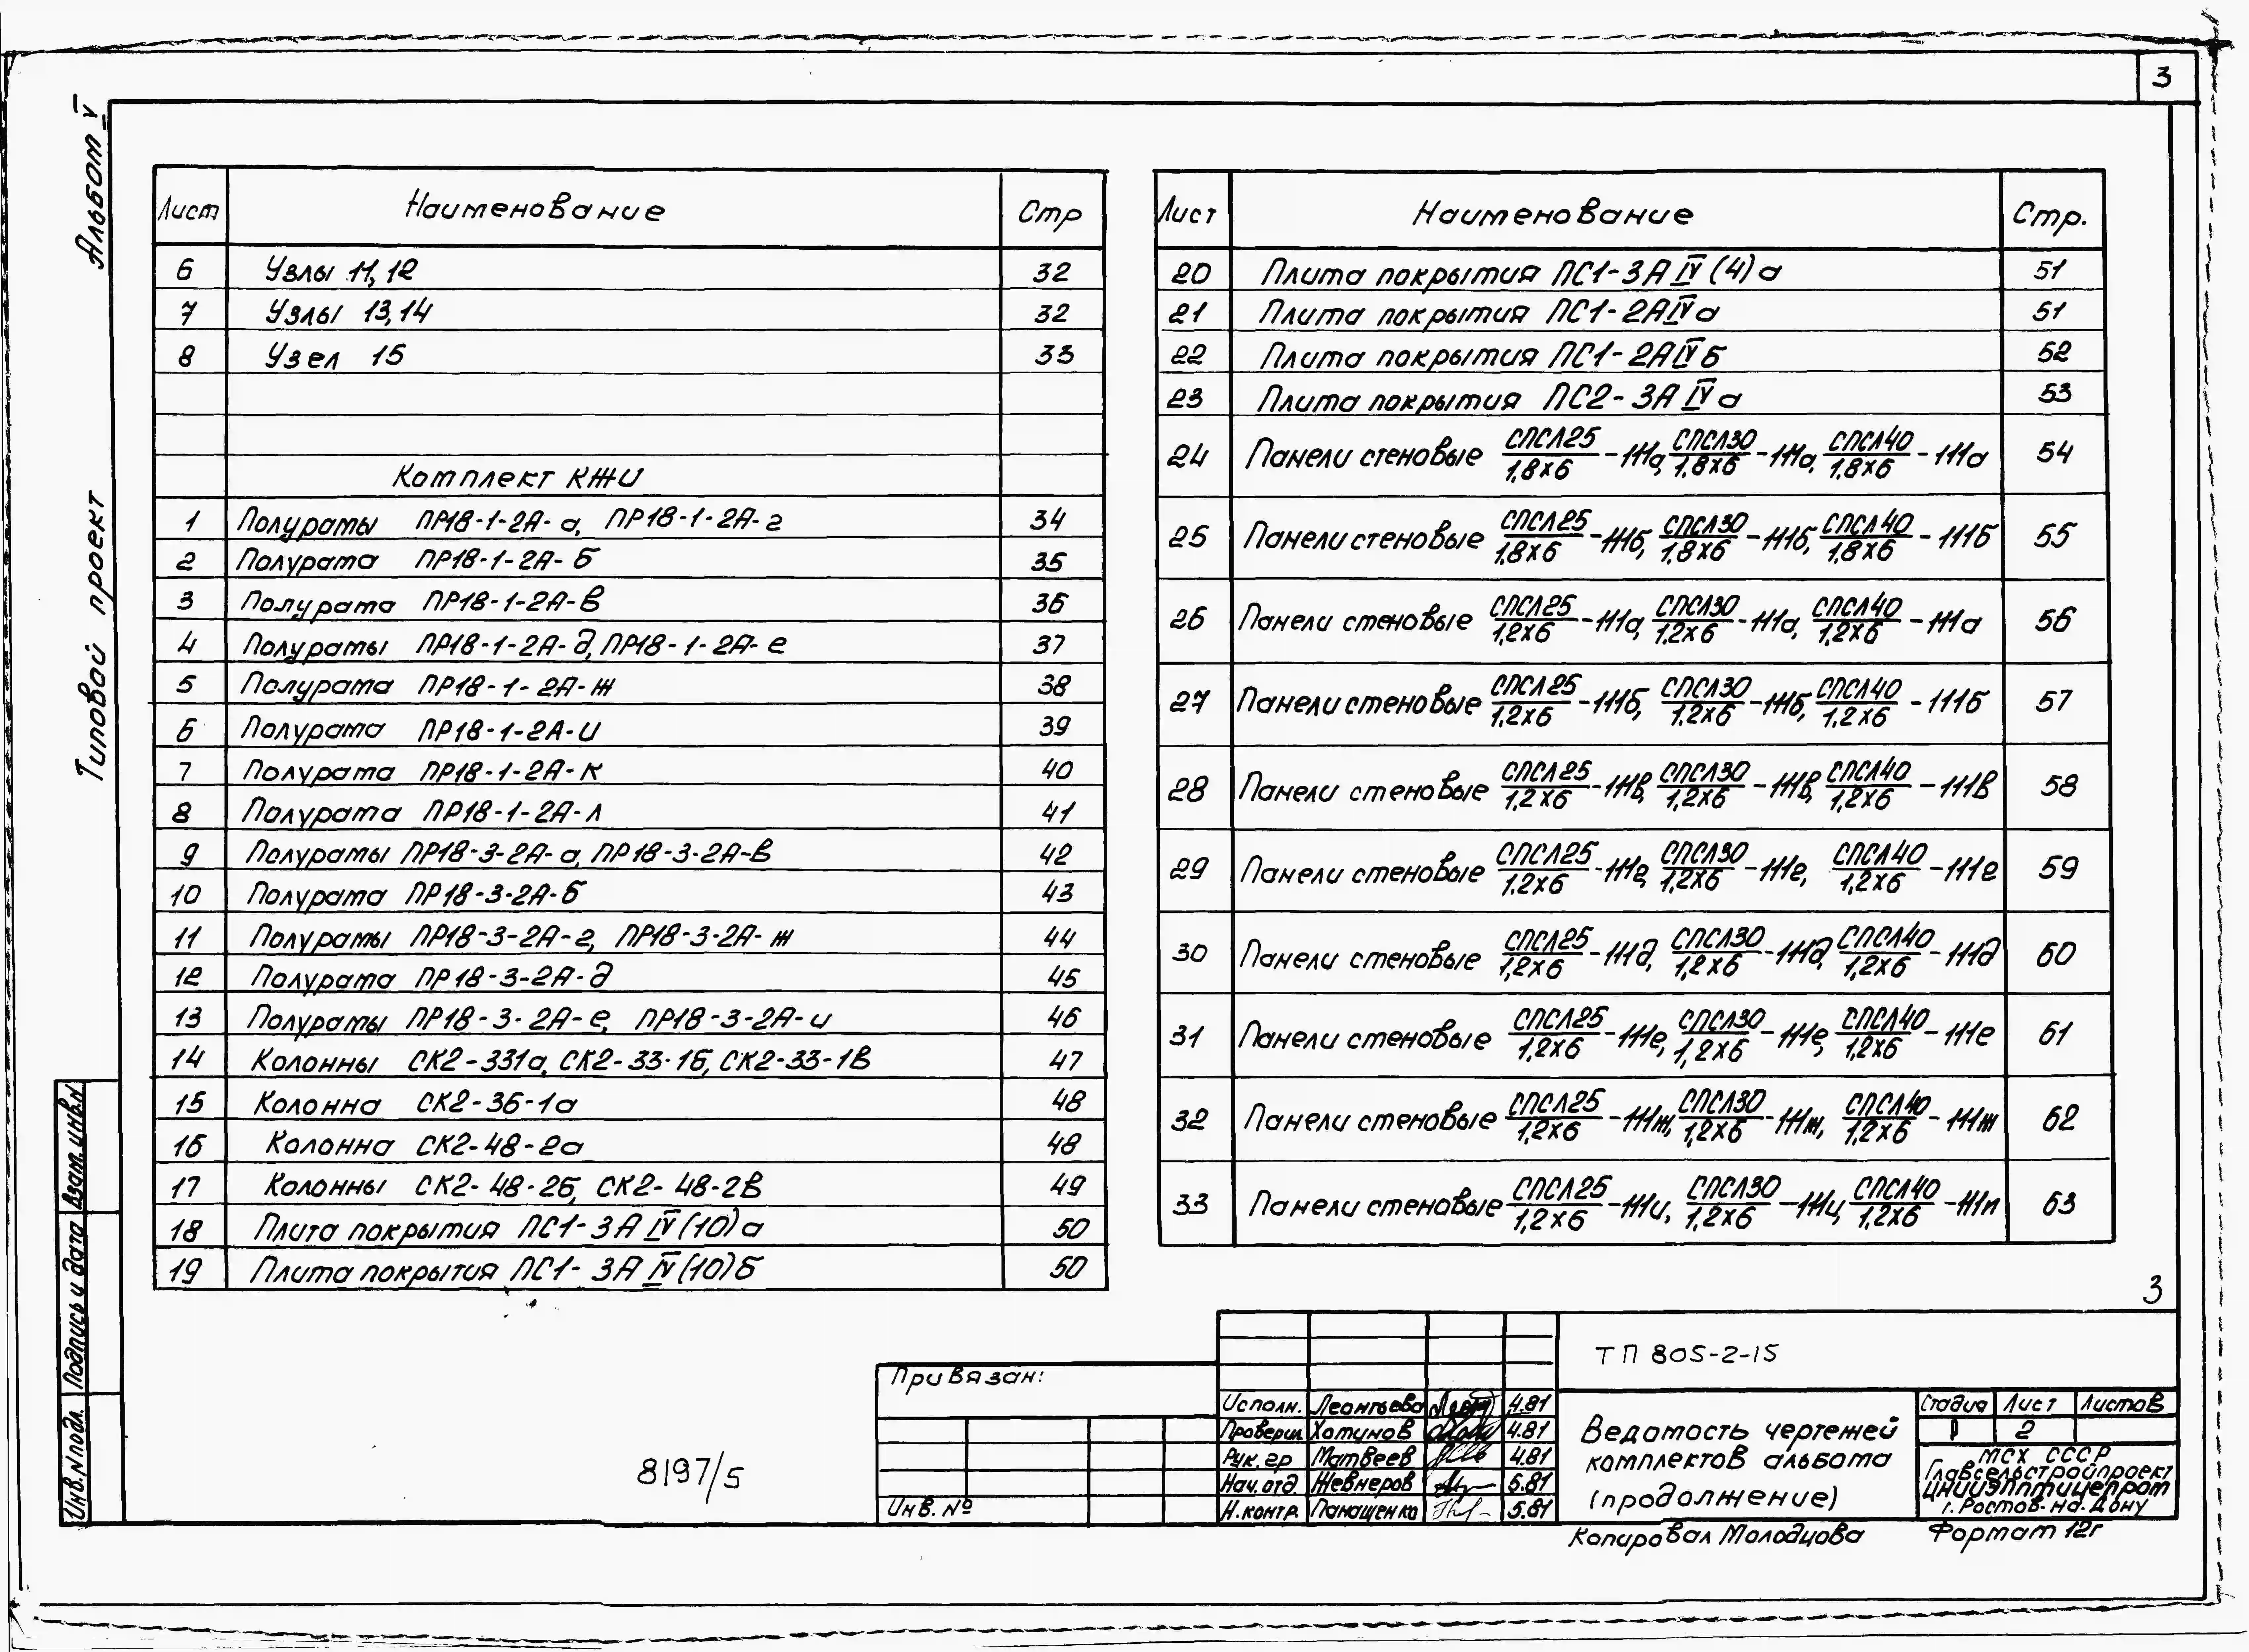 3
Альбом V
Типовой проект
Лист Наименование Стр
6 Узлы 11, 12 32
7 Узлы 13,14 32
8 Узел 15 33
Комплект КЖИ
1 Полурамы ПР18-1-2А-а, ПР18-1-2А-г 34
2 Полурама ПР18-1-2А-б 35
3 Полурама ПР18-1-2А-в 36
4 Полурамы ПР18-1-2А-д, ПР18-1-2А-е 37
5 Полурама ПР18-1-2А-ж 38
6 Полурама ПР18-1-2А-и 39
7 Полурама ПР18-1-2А-к 40
8 Полурама ПР18-1-2А-л 41
9 Полурамы ПР18-3-2А-а, ПР18-3-2А-в 42
10 Полурама ПР18-3-2А-б 43
11 Полурамы ПР18-3-2А-г, ПР18-3-2А-ж 44
12 Полурама ПР18-3-2А-д 45
13 Полурамы ПР18-3-2А-е, ПР18-3-2А-и 46
14 Колонны СК2-331а, СК2-33-1б, СК2-33-1в 47
15 Колонна СК2-36-1а 48
16 Колонна СК2-48-2а 48
17 Колонны СК2-48-2б, СК2-48-2в 49
18 Плита покрытия ПС1-3А IV (10)а 50
19 Плита покрытия ПС1-3А IV (10)б 50
Лист Наименование Стр.
20 Плита покрытия ПС1-3А IV (4)а 51
21 Плита покрытия ПС1-2А IV а 51
22 Плита покрытия ПС1-2А IV б 52
23 Плита покрытия ПС2-3А IV а 53
24 Панели стеновые СПСЛ25/1,8х6-111а, СПСЛ30/1,8х6-111а, СПСЛ40/1,8х6-111а 54
25 Панели стеновые СПСЛ25/1,8х6-111б, СПСЛ30/1,8х6-111б, СПСЛ40/1,8х6-111б 55
26 Панели стеновые СПСЛ25/1,2х6-111а, СПСЛ30/1,2х6-111а, СПСЛ40/1,2х6-111а 56
27 Панели стеновые СПСЛ25/1,2х6-111б, СПСЛ30/1,2х6-111б, СПСЛ40/1,2х6-111б 57
28 Панели стеновые СПСЛ25/1,2х6-111в, СПСЛ30/1,2х6-111в, СПСЛ40/1,2х6-111в 58
29 Панели стеновые СПСЛ25/1,2х6-111г, СПСЛ30/1,2х6-111г, СПСЛ40/1,2х6-111г 59
30 Панели стеновые СПСЛ25/1,2х6-111д, СПСЛ30/1,2х6-111д, СПСЛ40/1,2х6-111д 60
31 Панели стеновые СПСЛ25/1,2х6-111е, СПСЛ30/1,2х6-111е, СПСЛ40/1,2х6-111е 61
32 Панели стеновые СПСЛ25/1,2х6-111ж, СПСЛ30/1,2х6-111ж, СПСЛ40/1,2х6-111ж 62
33 Панели стеновые СПСЛ25/1,2х6-111и, СПСЛ30/1,2х6-111и, СПСЛ40/1,2х6-111и 63
3
Инв. N подл. Подпись и дата Взам. инв. N
8197/5
Привязан:
Инв. №
ТП 805-2-15
Исполн. Леонтьева 4.81
Проверил Хотинов 4.81
Рук. гр Матвеев 4.81
Нач. отд. Жевнеров 5.81
Н. контр. Панащенко 5.81
Ведомость чертежей
комплектов альбома
(продолжение)
Стадия Лист Листов
Р 2
МСХ СССР
Главсельстройпроект
ЦНИИЭПптицепром
г. Ростов-на-Дону
Копировал Молодцова Формат 12г